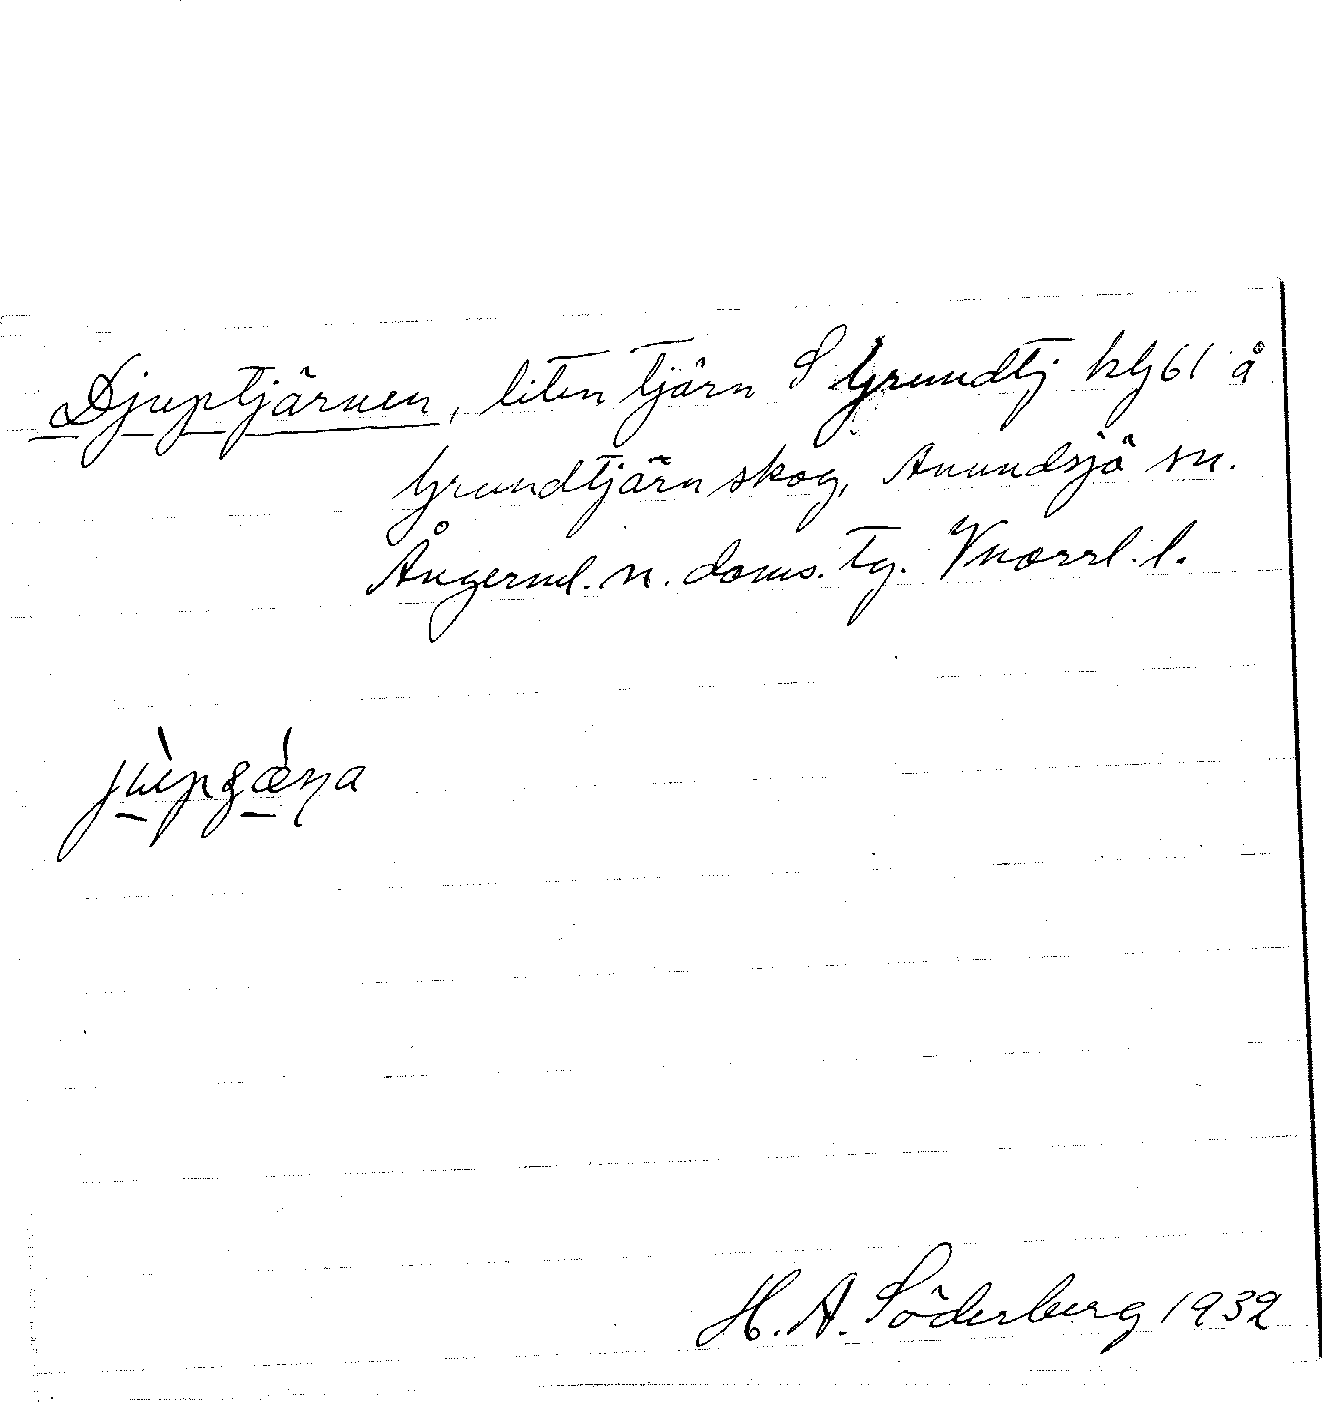 Djuptjärnen, liten tjärn S Grundtj hlg 61 å
Grundtjärn skog, Anundsjö sn.
Ångerml. n. doms. tg. Vnorrl. l.
H. A. Söderberg 1932